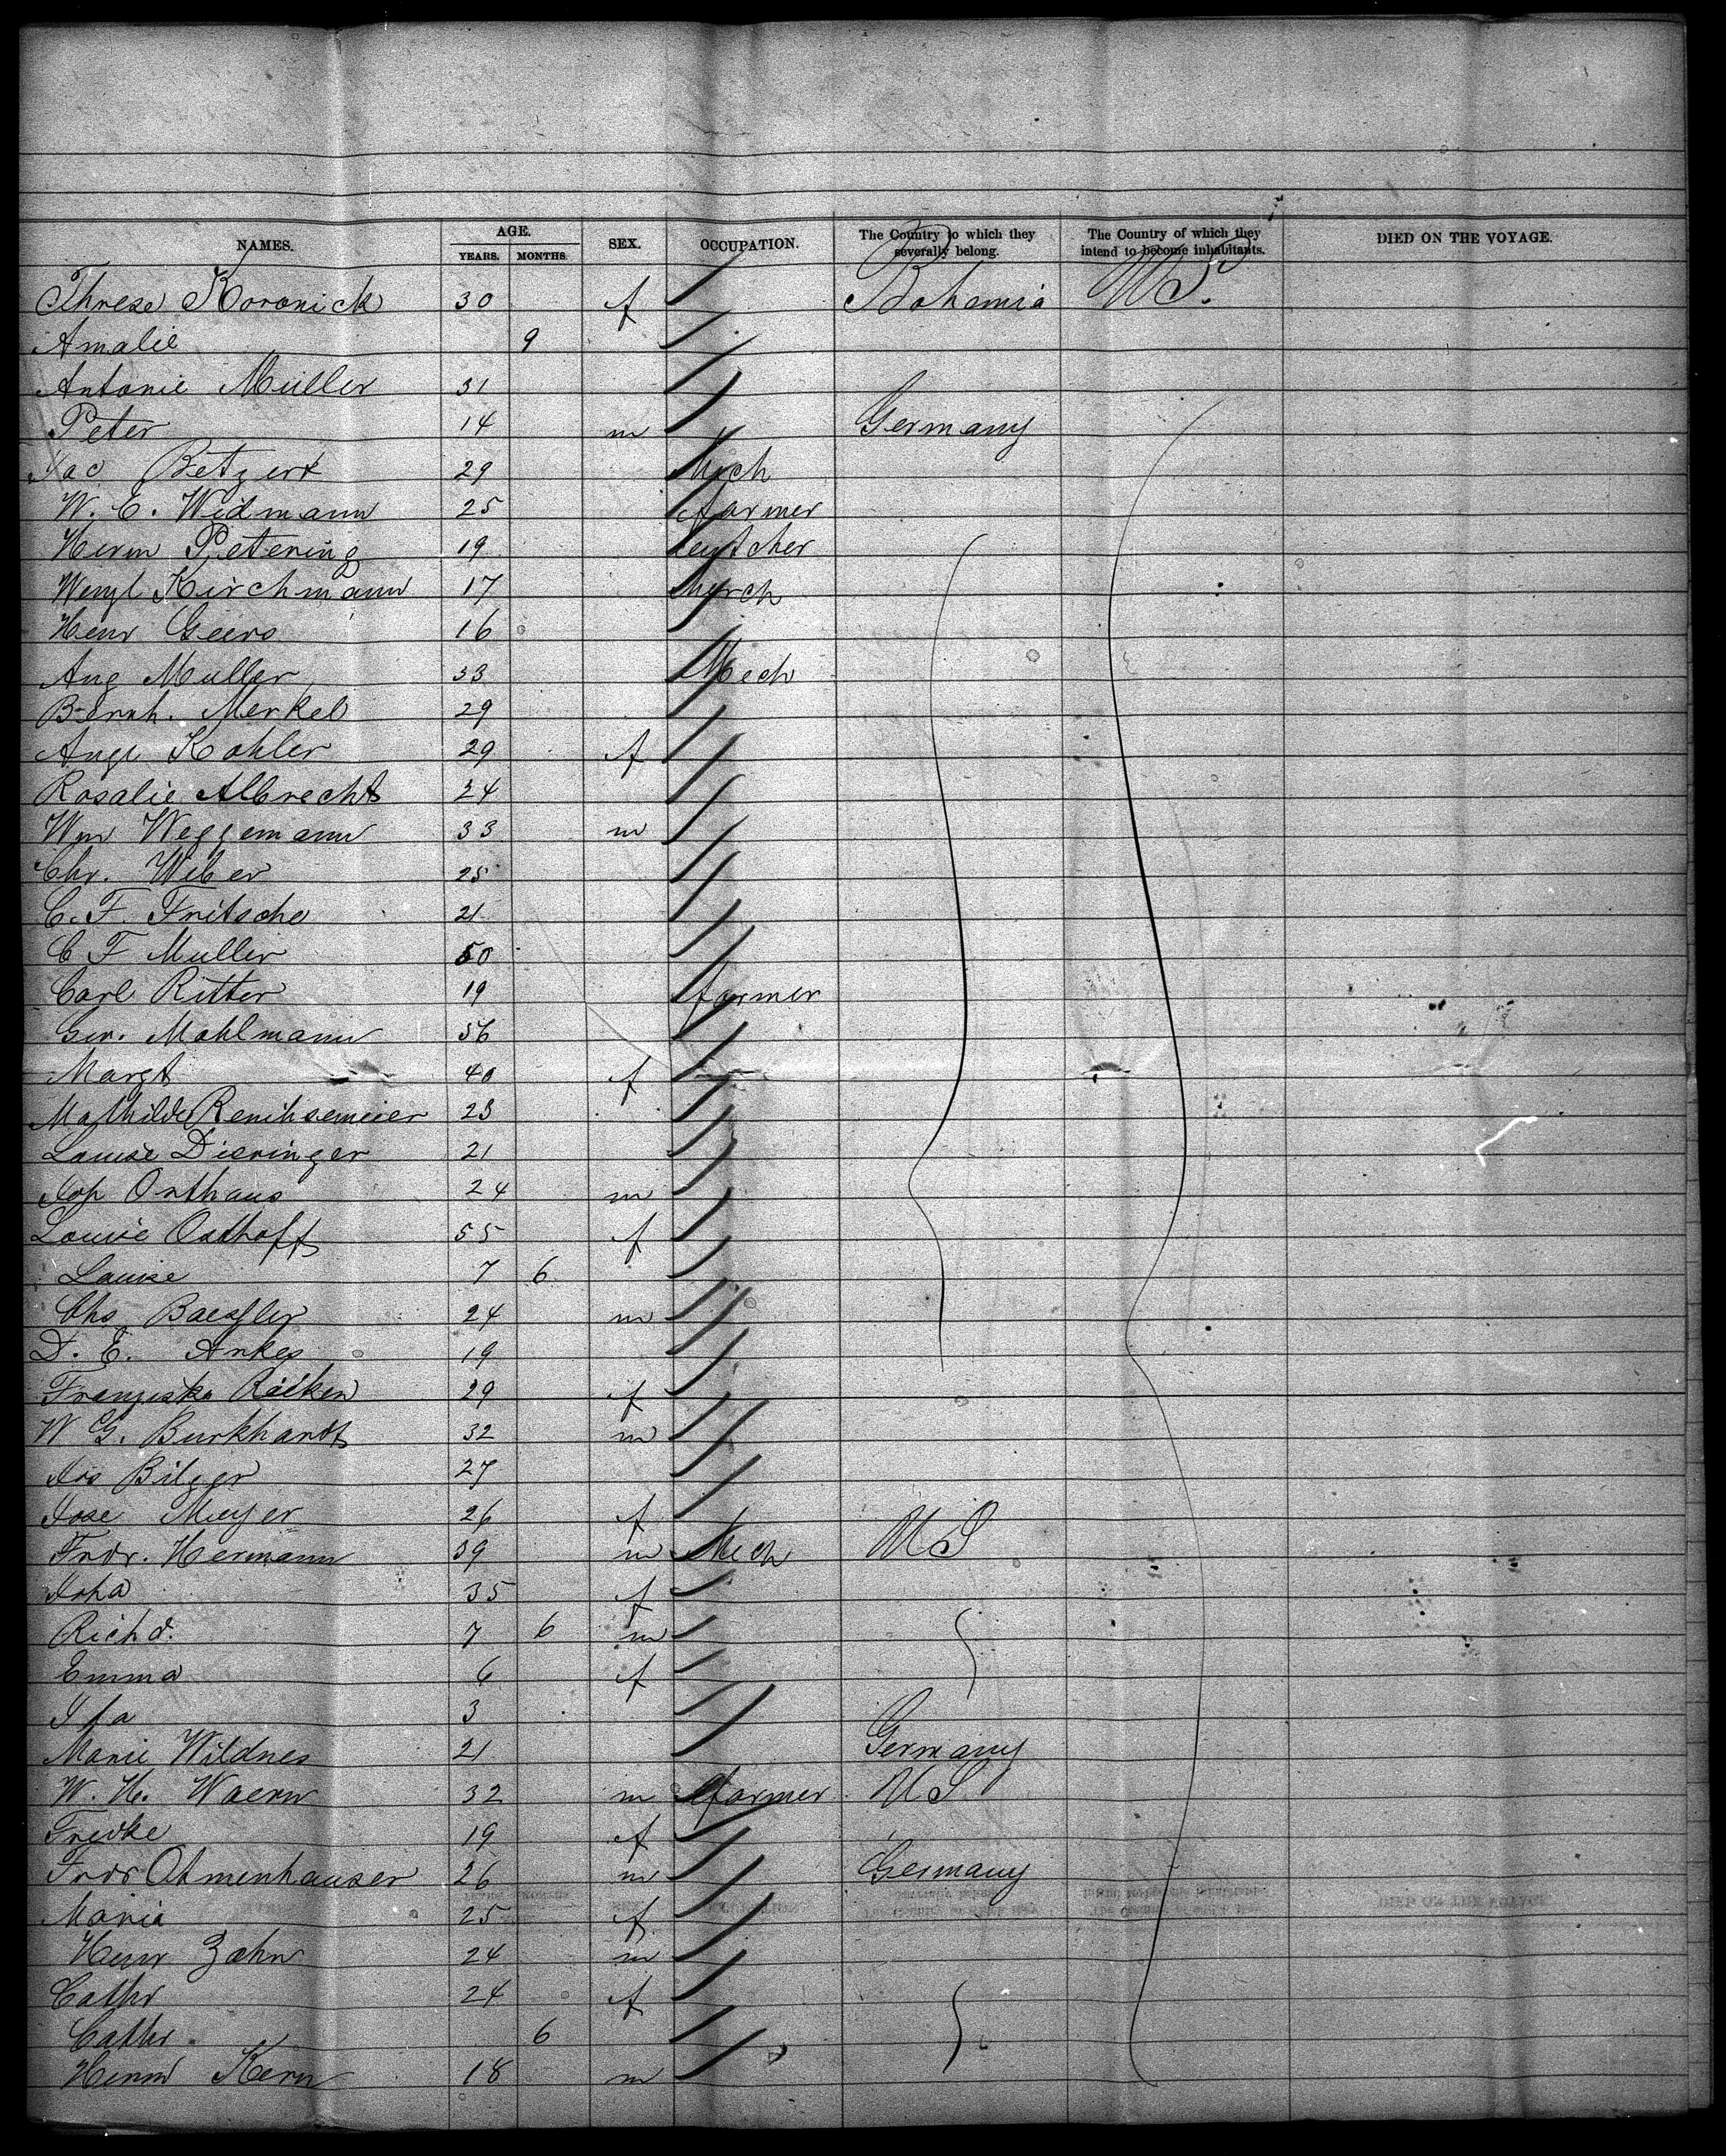 NAMES. AGE. YEARS. MONTHS. SEX. OCCUPATION. The Country to which they severally belong. The Country of which they intend to become inhabitants. DIED ON THE VOYAGE.
Threse Koronick 30 f Bohemia U.S.
Amalie 9
Antonie Müller 31
Peter 14 m Germany
Jac Betzert 29 Mech
W. E. Widmann 25 farmer
Herm Petering 19 butcher
Wenzl Kirchmann 17 Merch
Henr Geers 16
Aug Muller 33 Mech
Bernh. Merkel 29
Aug Kohler 29 f
Rosalie Albrecht 24
Wm Weggemann 33 m
Chr. Wiber 25
C. F. Fritsche 21
C F Muller 50
Carl Ritter 19 farmer
Ger. Mahlmann 56
Margt 40 f
Mathilde 23
Louise Dieringer 21
Joh Orthaus 24 m
Louise Osthoff 55 f
Louise 7 6
Chs Baessler 24 m
D. E. Ankes 19
Franziska 29 f
W G. Burkhardt 32 m
Jos Bilger 27
Jose Meyer 26 f
Frdr. Hermann 39 m Mech U S
Joha 35 f
Richd. 7 6 m
Emma 6 f
3
Marie Wildnes 21 Germany
W. H. 32 m farmer U S
Fredke 19 f
Frdr Otmenhauser 26 m Germany
Maria 25 f
Henr Zahn 24 m
Cathr 24 f
Cathr 6
Herm Kern 18 m